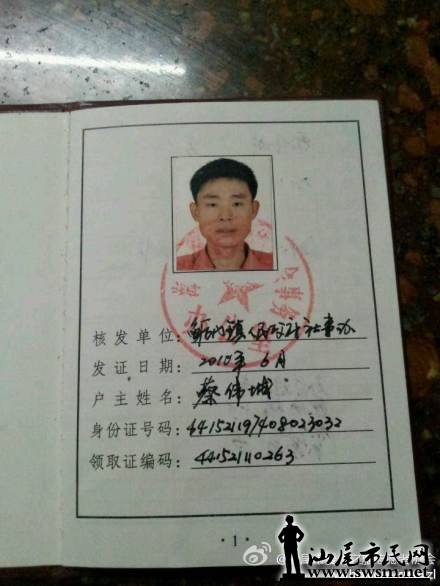 核发单位：鲘门镇人民政府社事办
发证日期：2010年6月
户主姓名：蔡伟城
身份证号码：441521197408023032
领取证编码：44152110263
·1·
汕尾市民网
www.swsm.net